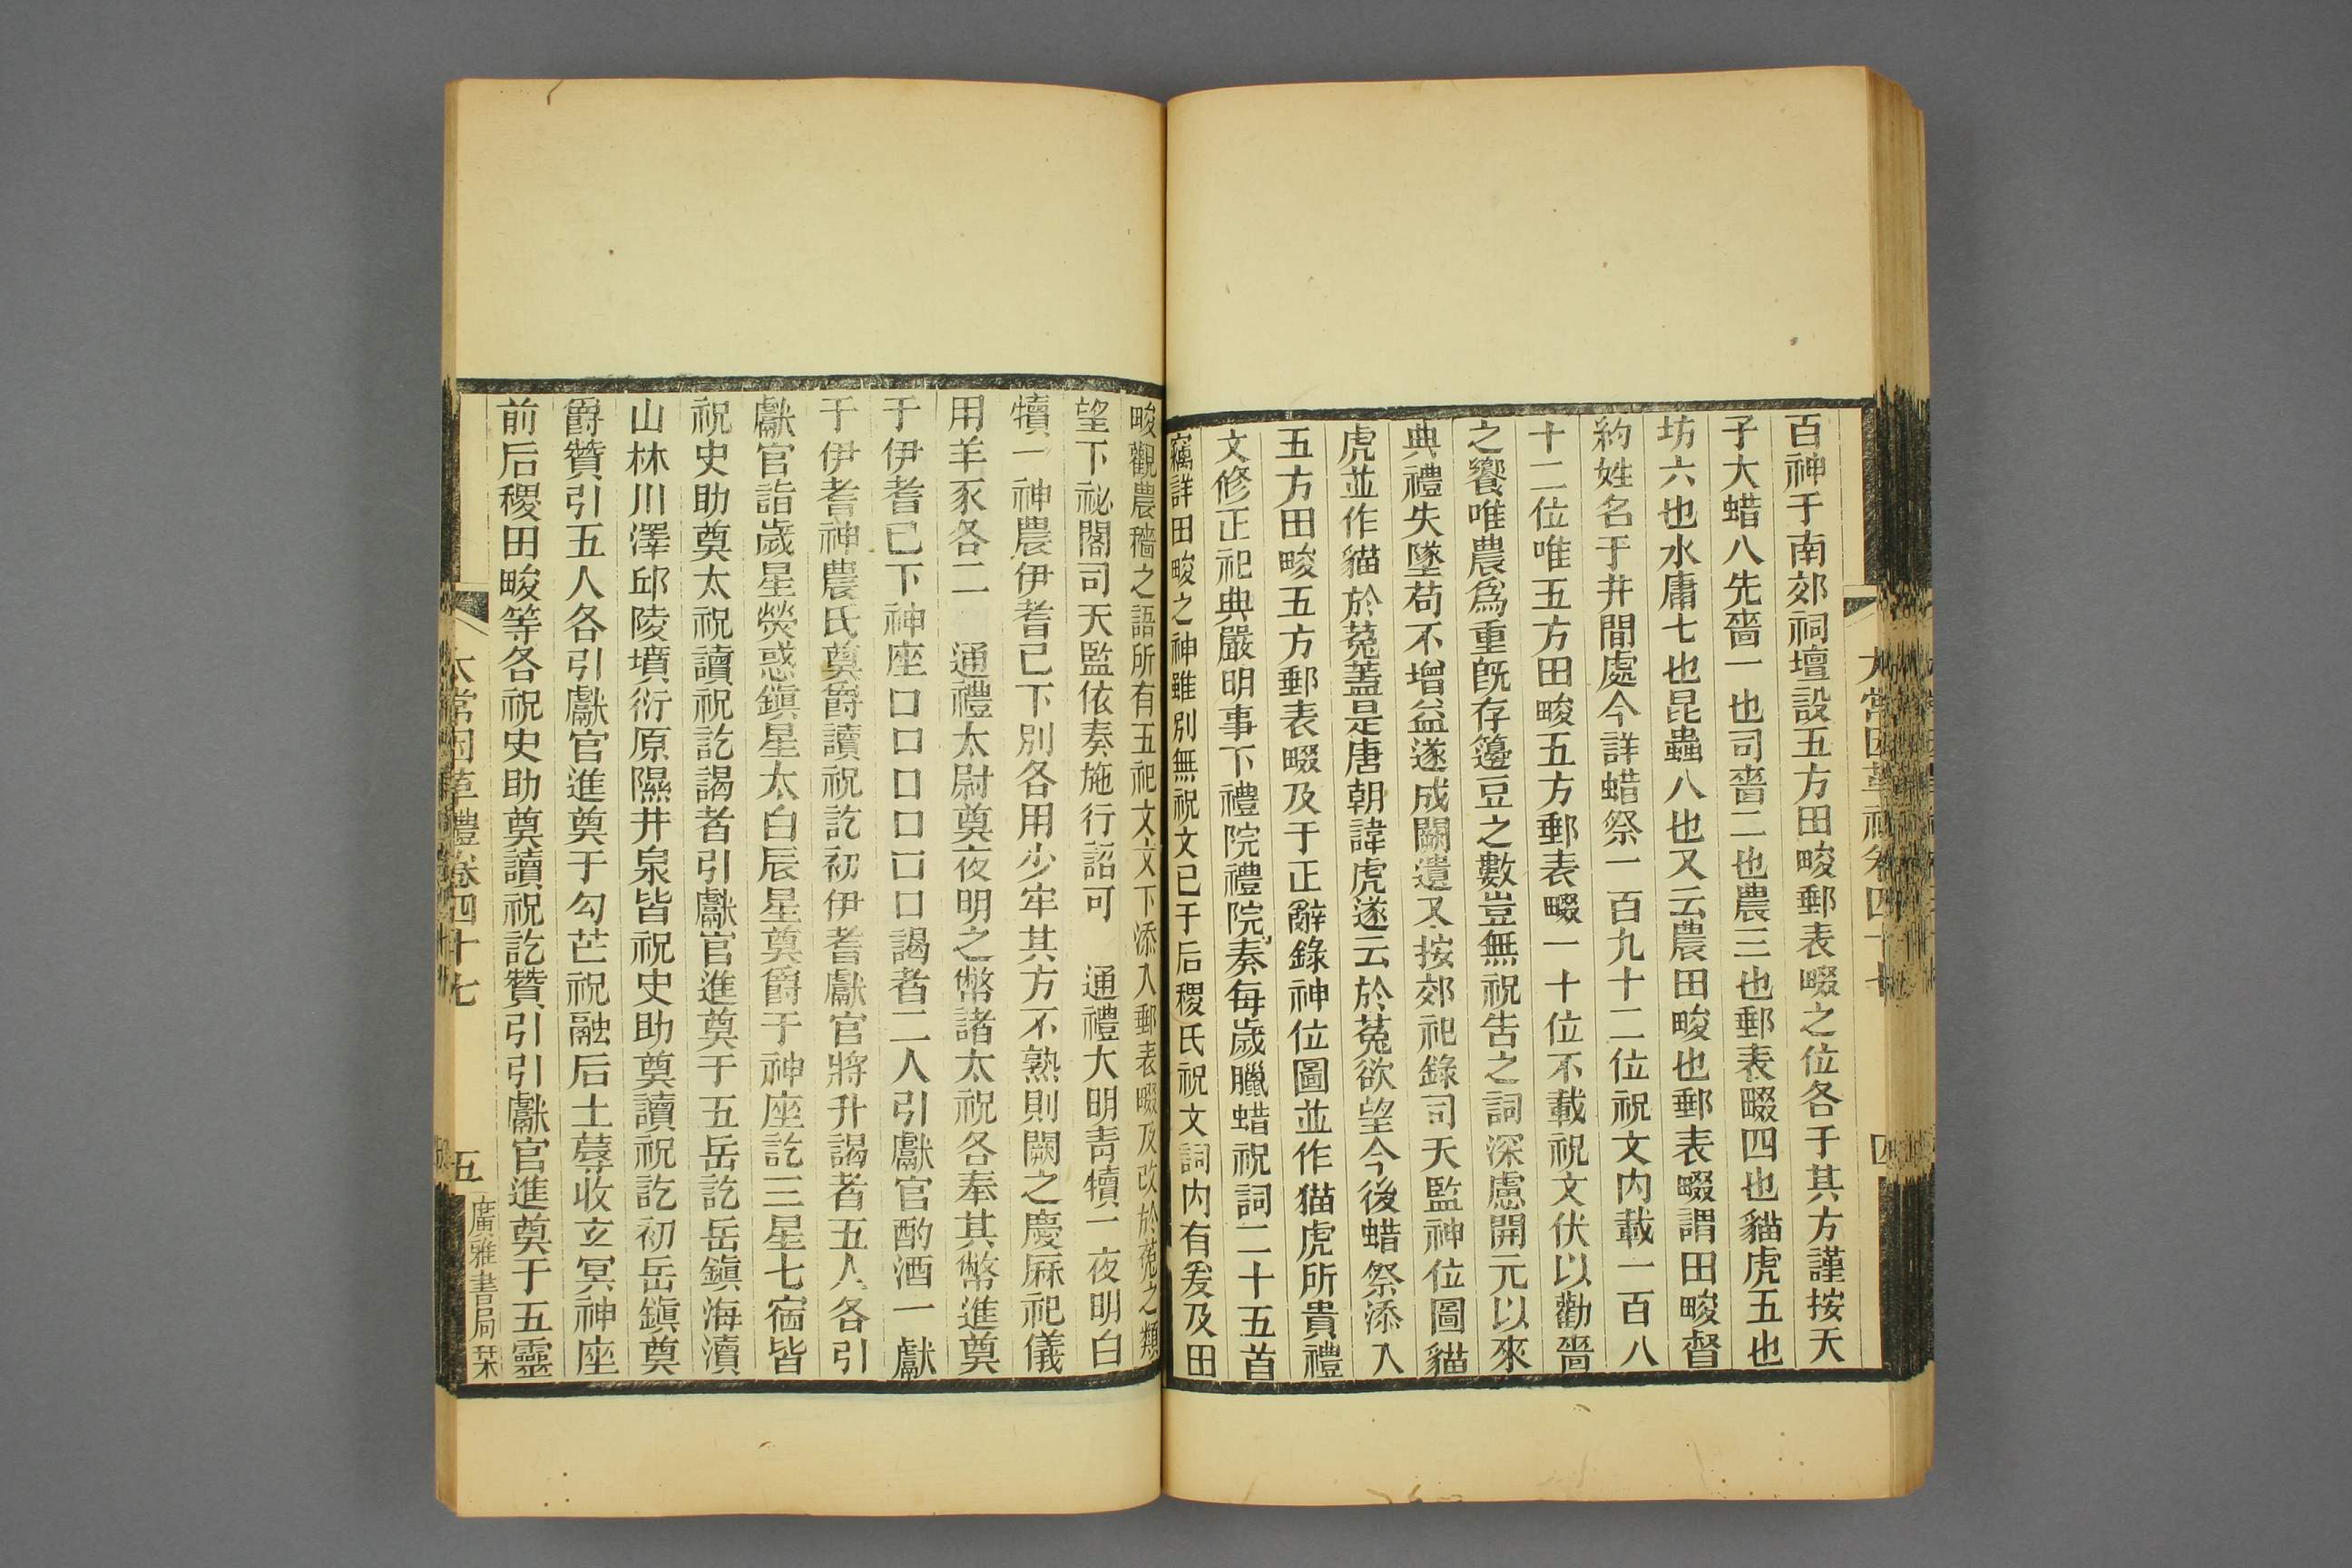 百神于南郊祠壇設五方田畯郵表畷之位各于其方謹按天
子大蜡八先嗇一也司嗇二也農三也郵表畷四也貓虎五也
坊六也水庸七也昆蟲八也又云農田畯也郵表畷謂田畯督
約姓名于井間處今詳蜡祭一百九十二位祝文內載一百八
十二位唯五方田畯五方郵表畷一十位不載祝文伏以勸嗇
之饗唯農爲重既存籩豆之數豈無祝告之詞深慮開元以來
典禮失墜苟不增益遂成闕遺又按郊祀錄司天監神位圖貓
虎並作貓於菟蓋是唐朝諱虎遂云於菟欲望今後蜡祭添入
五方田畯五方郵表畷及于正辭錄神位圖並作猫虎所貴禮
文修正祀典嚴明事下禮院禮院奏每歲臘蜡祝詞二十五首
竊詳田畯之神雖別無祝文已于后稷氏祝文詞內有爰及田
畯觀農穡之語所有五祀文文下添入郵表畷及改於菟之類
望下祕閣司天監依奏施行詔可　通禮大明青犢一夜明白
犢一神農伊耆已下別各用少牢其方不熟則闕之慶厤祀儀
用羊豕各二　通禮太尉奠夜明之幣諸太祝各奉其幣進奠
于伊耆已下神座口口口口口口謁者二人引獻官酌酒一獻
于伊耆神農氏奠爵讀祝訖初伊耆獻官將升謁者五人各引
獻官詣歲星熒惑鎭星太白辰星奠爵于神座訖三星七宿皆
祝史助奠太祝讀祝訖謁者引獻官進奠于五岳訖岳鎭海瀆
山林川澤邱陵墳衍原隰井泉皆祝史助奠讀祝訖初岳鎭奠
爵贊引五人各引獻官進奠于勾芒祝融后土蓐收玄冥神座
前后稷田畯等各祝史助奠讀祝訖贊引引獻官進奠于五靈
太常因革禮卷四十七
五
廣雅書局栞